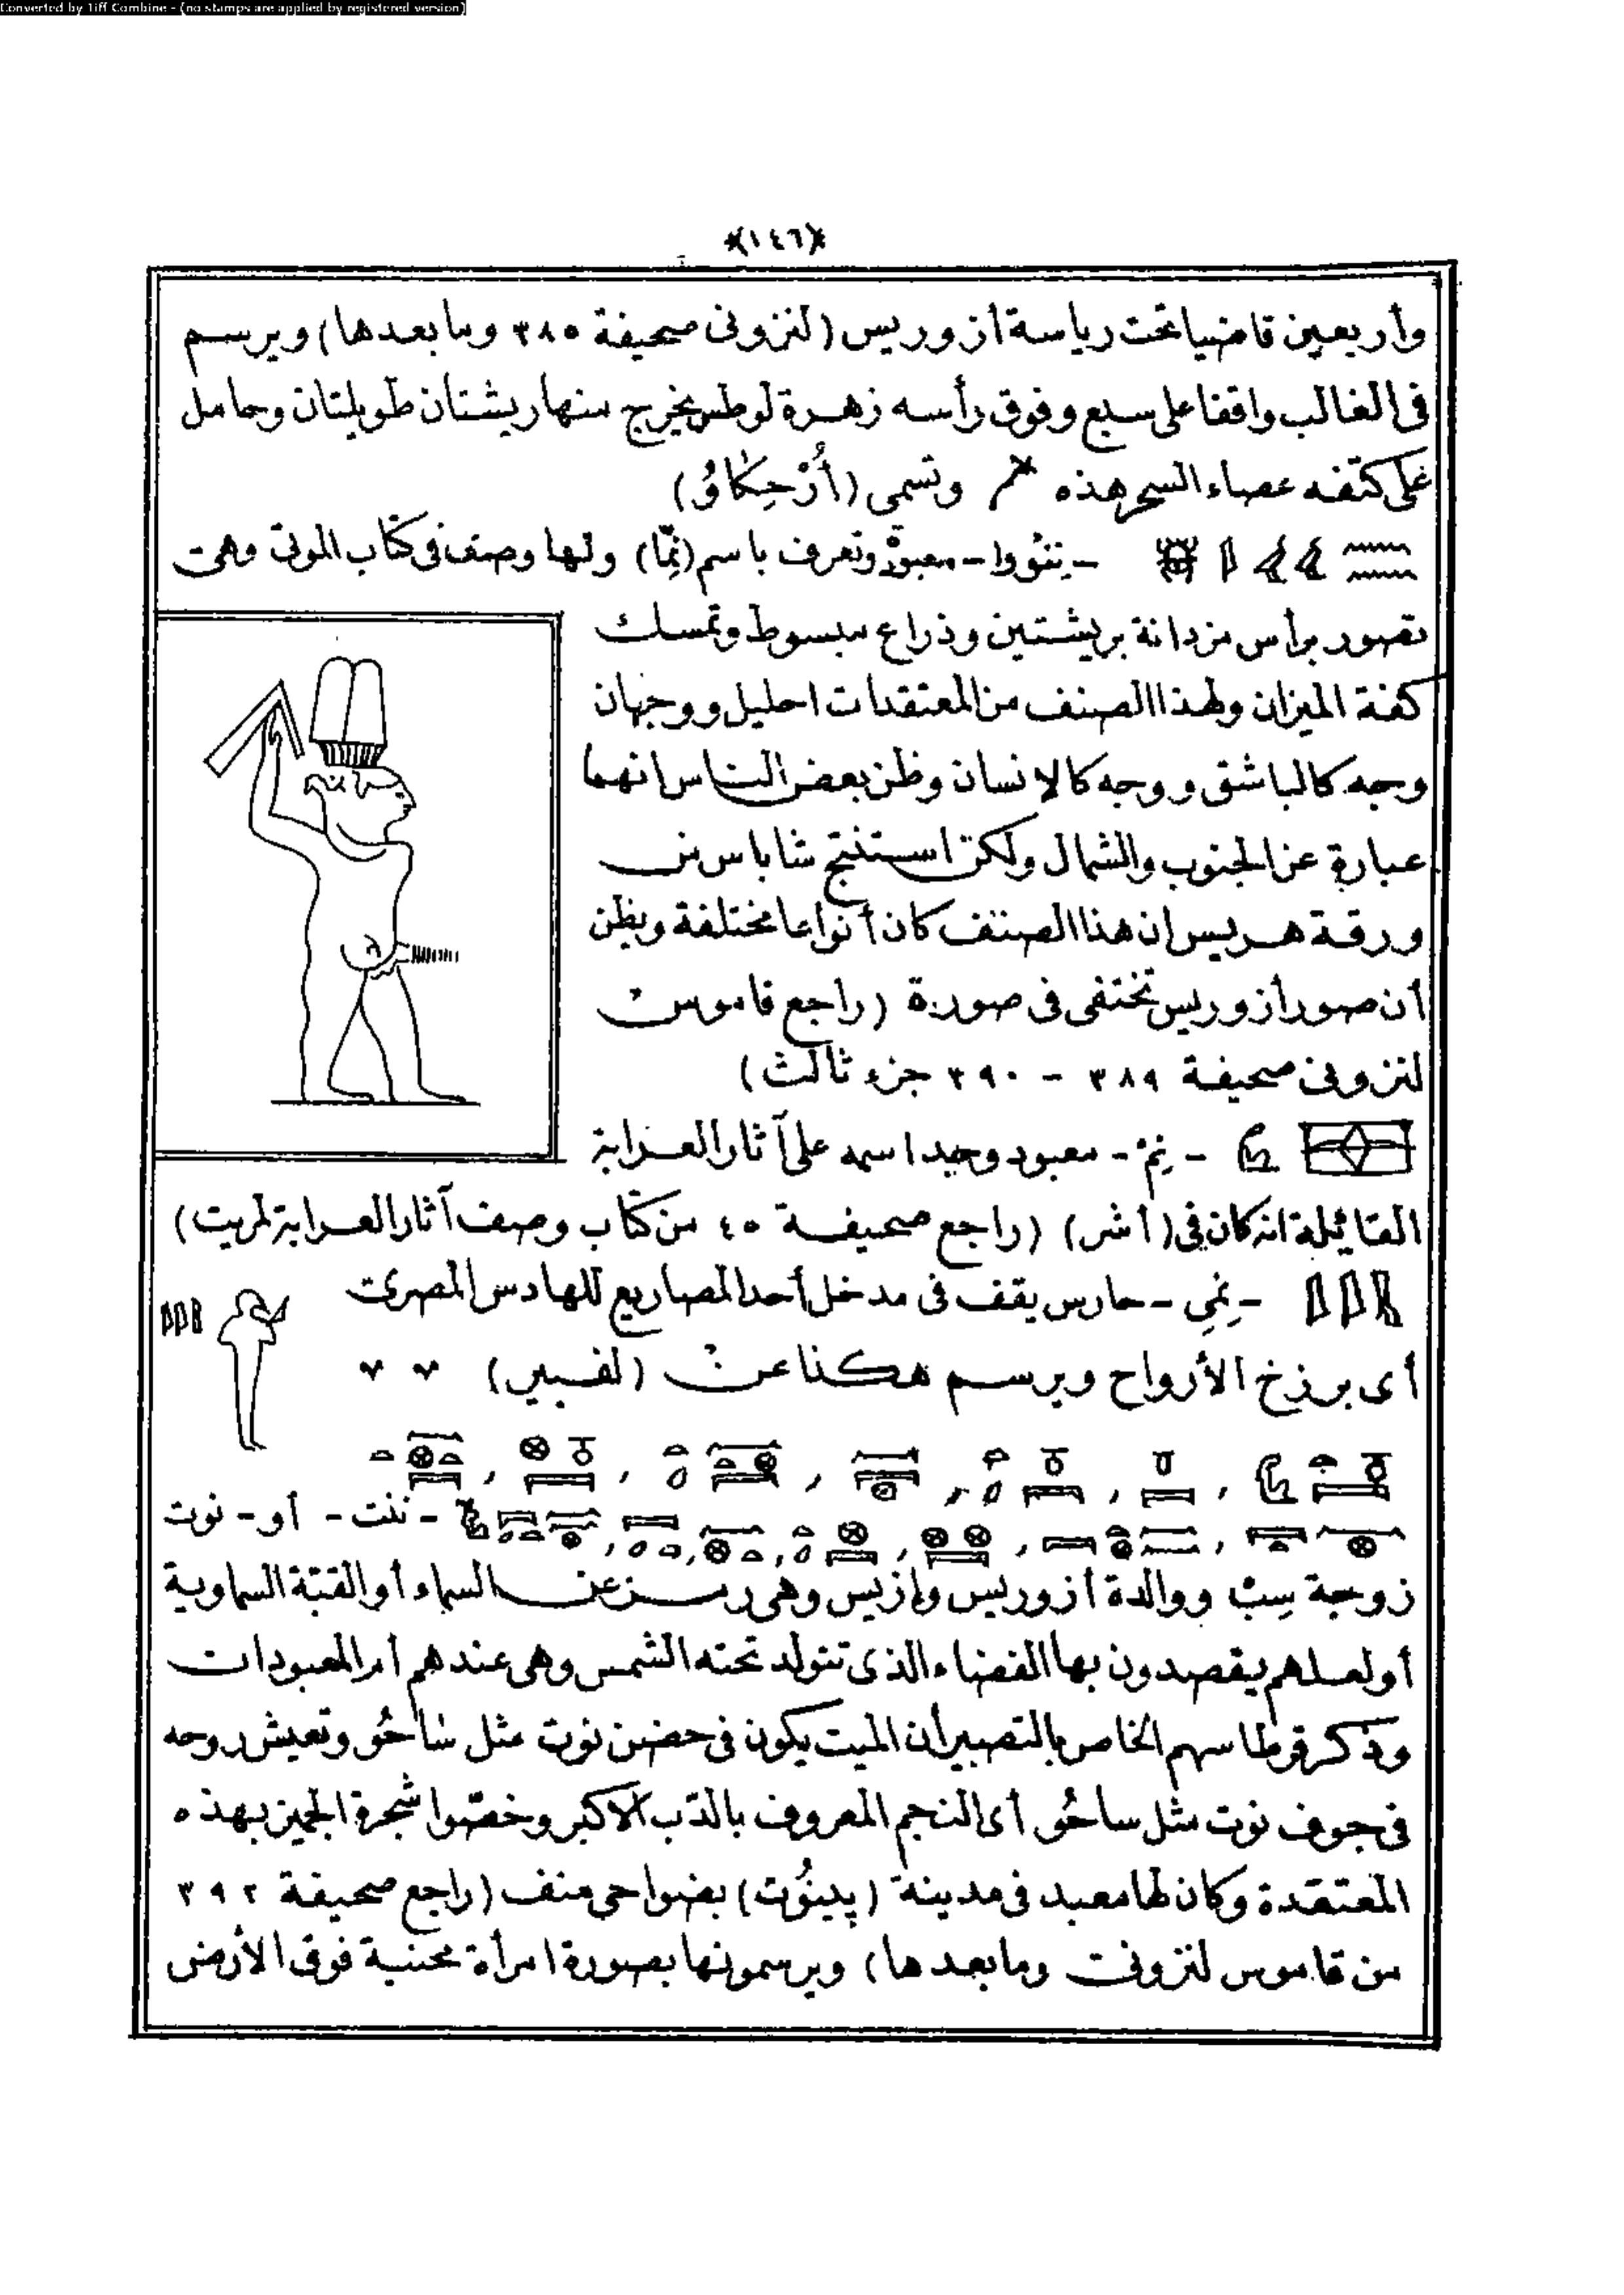 Converted by Tiff Combine - (no stamps are applied by registered version)
﴿١٤٦﴾
وأربعين قاضيا تحت رياسة أزوريس (لنزونى صحيفة ٣٨٥ وما بعدها) ويرسم
فى الغالب واقفا على سبع وفوق رأسه زهرة لوطس يخرج منها ريشتان طويلتان وحامل
على كتفه عصاء السحر هذه وتسمى (أُرْحِكَاوُ)
- نِنْوُوا - معبودة وتعرف باسم (نِمَّا) ولها وصف فى كتاب الموتى وهى
تصور برأس مزدانة بريشتين وذراع مبسوط وتمسك
كفة الميزان ولهذا الصنف من المعتقدات احليل ووجهان
وجه كالباشق ووجه كالانسان وظن بعض الناس انهما
عبارة عن الجنوب والشمال ولكن استنتج شاباس من
ورقة هريس ان هذا الصنف كان أنواعا مختلفة ويظن
أن صور أزوريس تختفى فى صورة (راجع قاموس
لنزونى صحيفة ٣٨٩ - ٣٩٠ جزء ثالث)
- نِمْ - معبود وجد اسمه على آثار العرابة
القائلة انه كان فى (أشر) (راجع صحيفة ٤٥ من كتاب وصف آثار العرابة لمريت)
- نِمِى - حارس يقف فى مدخل أحد المصاريع للهادس المصرى
أى برزخ الأرواح ويرسم هكذا عن (لفبير)
- ننت - أو - نوت
زوجة سِبْ ووالدة أزوريس وإزيس وهى رمز عن السماء أو القبة السماوية
أو لعلهم يقصدون بها الفضاء الذى تتولد تحته الشمس وهى عندهم أم المعبودات
وذكر قرطاسهم الخاص بالتصبير أن الميت يكون فى حضن نوت مثل ساحُو وتعيش روحه
فى جوف نوت مثل ساحُو أى النجم المعروف بالدّب الأكبر وخصّوا شجرة الجميز بهذه
المعتقدة وكان لها معبد فى مدينة (پِينُوت) بضواحى منف (راجع صحيفة ٣٩٢
من قاموس لنزونى وما بعدها) ويرسمونها بصورة امرأة محنية فوق الأرض